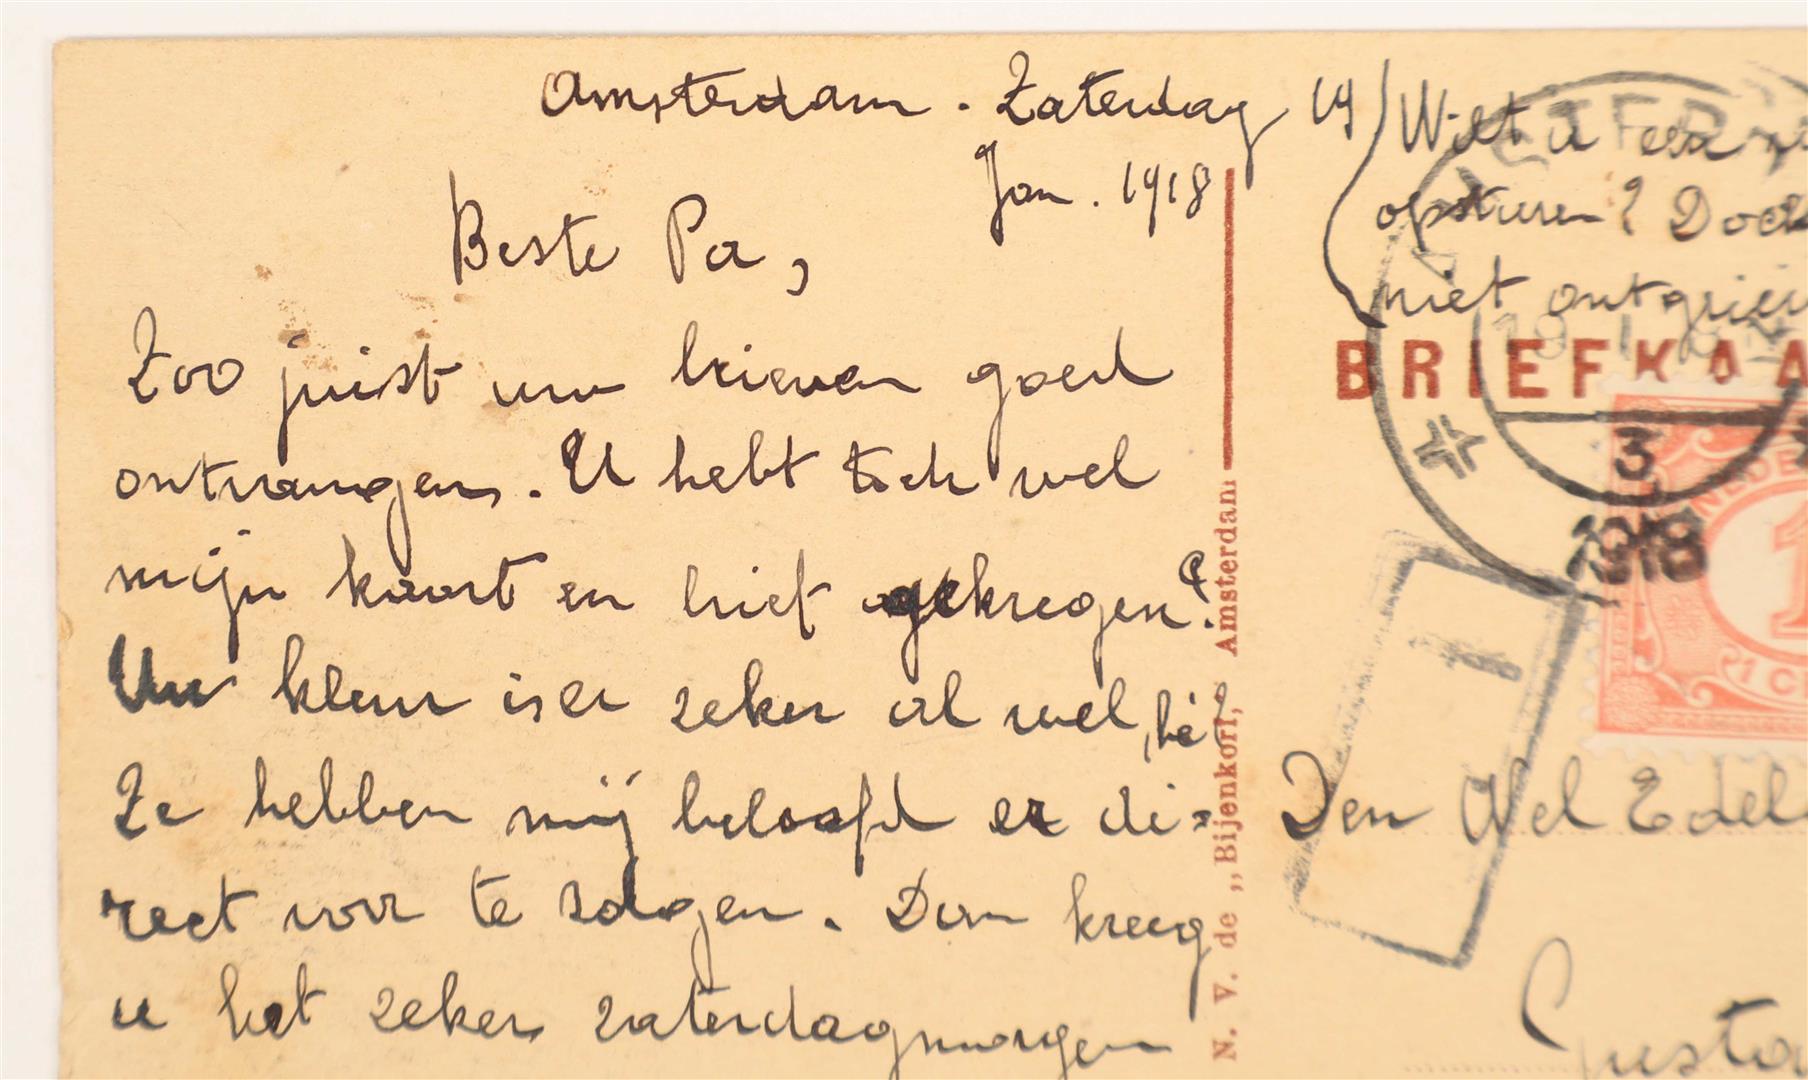 Amsterdam. Zaterdag 19
Jan. 1918
Beste Pa,
Zoo juist uw brieven goed
ontvangen. U hebt toch wel
mijn kaart en brief gekregen?
Uw kleur is er zeker al wel, hè?
Ze hebben mij beloofd er di=
rect voor te zorgen. Dan kreeg
u het zeker zaterdagmorgen
Wilt u
opsturen? Doch
niet
BRIEFKAA
N. V. de „Bijenkorf," Amsterdam
3
1918
NEDE
1
1 C
Den Wel Edel
Gusta